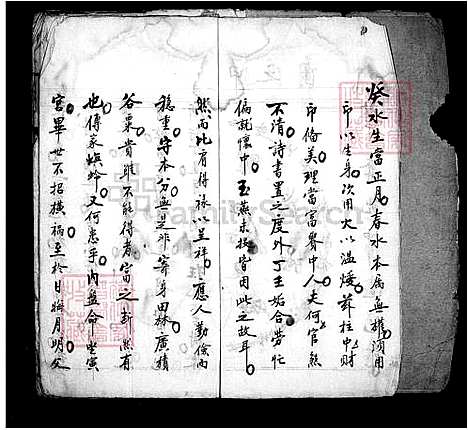 癸水生當正月春水本屬無權須用
印以生身次用火以溫煖莊柱中財
印俻美理當富貴中人夫何官煞
不清詩書置之度外丁壬妬合勞忙
偏說懷中玉燕未投皆因此之故耳
然而比肩得祿以呈祥應人勤儉而
穩重守本分無是非寄身田林廣積
谷粟貴雖不能得者富之新然有
也傳家螟蛉又何患乎內盤命坐寅
宮畢世不招橫禍至於日晦月明父
FamilySearch